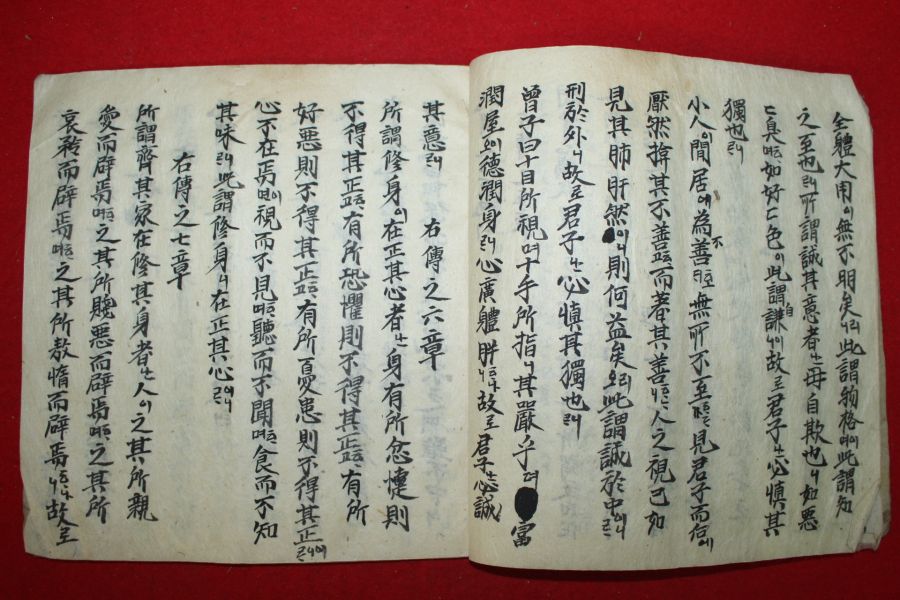 全體大用이無不明矣리니此謂物格이며此謂知
之至也라所謂誠其意者는毋自欺也니如惡
〻臭며如好〻色이此謂自謙이니故로君子는必慎其
獨也라
小人이閒居에為不善無所不至見君子而后에
厭然揜其不善而著其善人之視己如
見其肺肝然이니則何益矣리오此謂誠於中
刑於外니故로君子는必慎其獨也라
曾子曰十目所視며十手所指니其嚴乎며富
潤屋이오德潤身라心廣體胖故로君子는必誠
其意라 右傳之六章
所謂修身이在正其心者는身有所忿懥則
不得其正有所恐懼則不得其正有所
好惡則不得其正有所憂患則不得其正
心不在焉이면視而不見聽而不聞食而不知
其味라此謂修身니在正其心
右傳之七章
所謂齊其家在修其身者는人이之其所親
愛而辟焉之其所賤惡而辟焉之其所
哀矜而辟焉之其所敖惰而辟焉故로